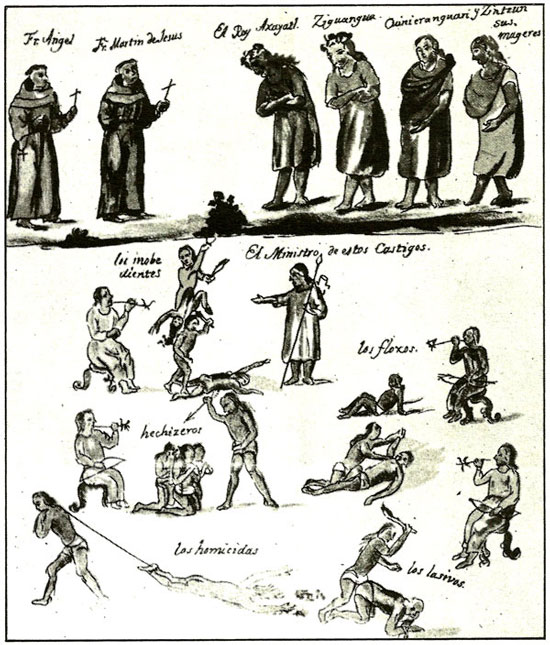 Fr. Angel
Fr. Martin de Jesus
El Rey Axayatl.
Ziguangua.
Quinieranguari y Zintzun
sus
mugeres
los inobe
dientes
El Ministro de estos Castigos.
los floxos.
hechizeros
los homicidas
los lasivos.